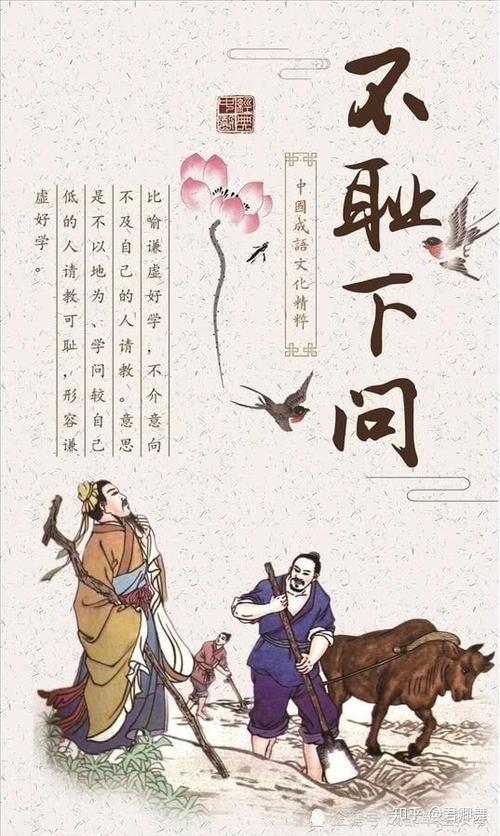 不耻下问
中國成語文化精粹
經典
中國
比喻谦虚好学，不介意向
不及自己的人请教。意思
是不以地为、学问较自己
低的人请教可耻，形容谦
虚好学。
知乎 @君卿舞